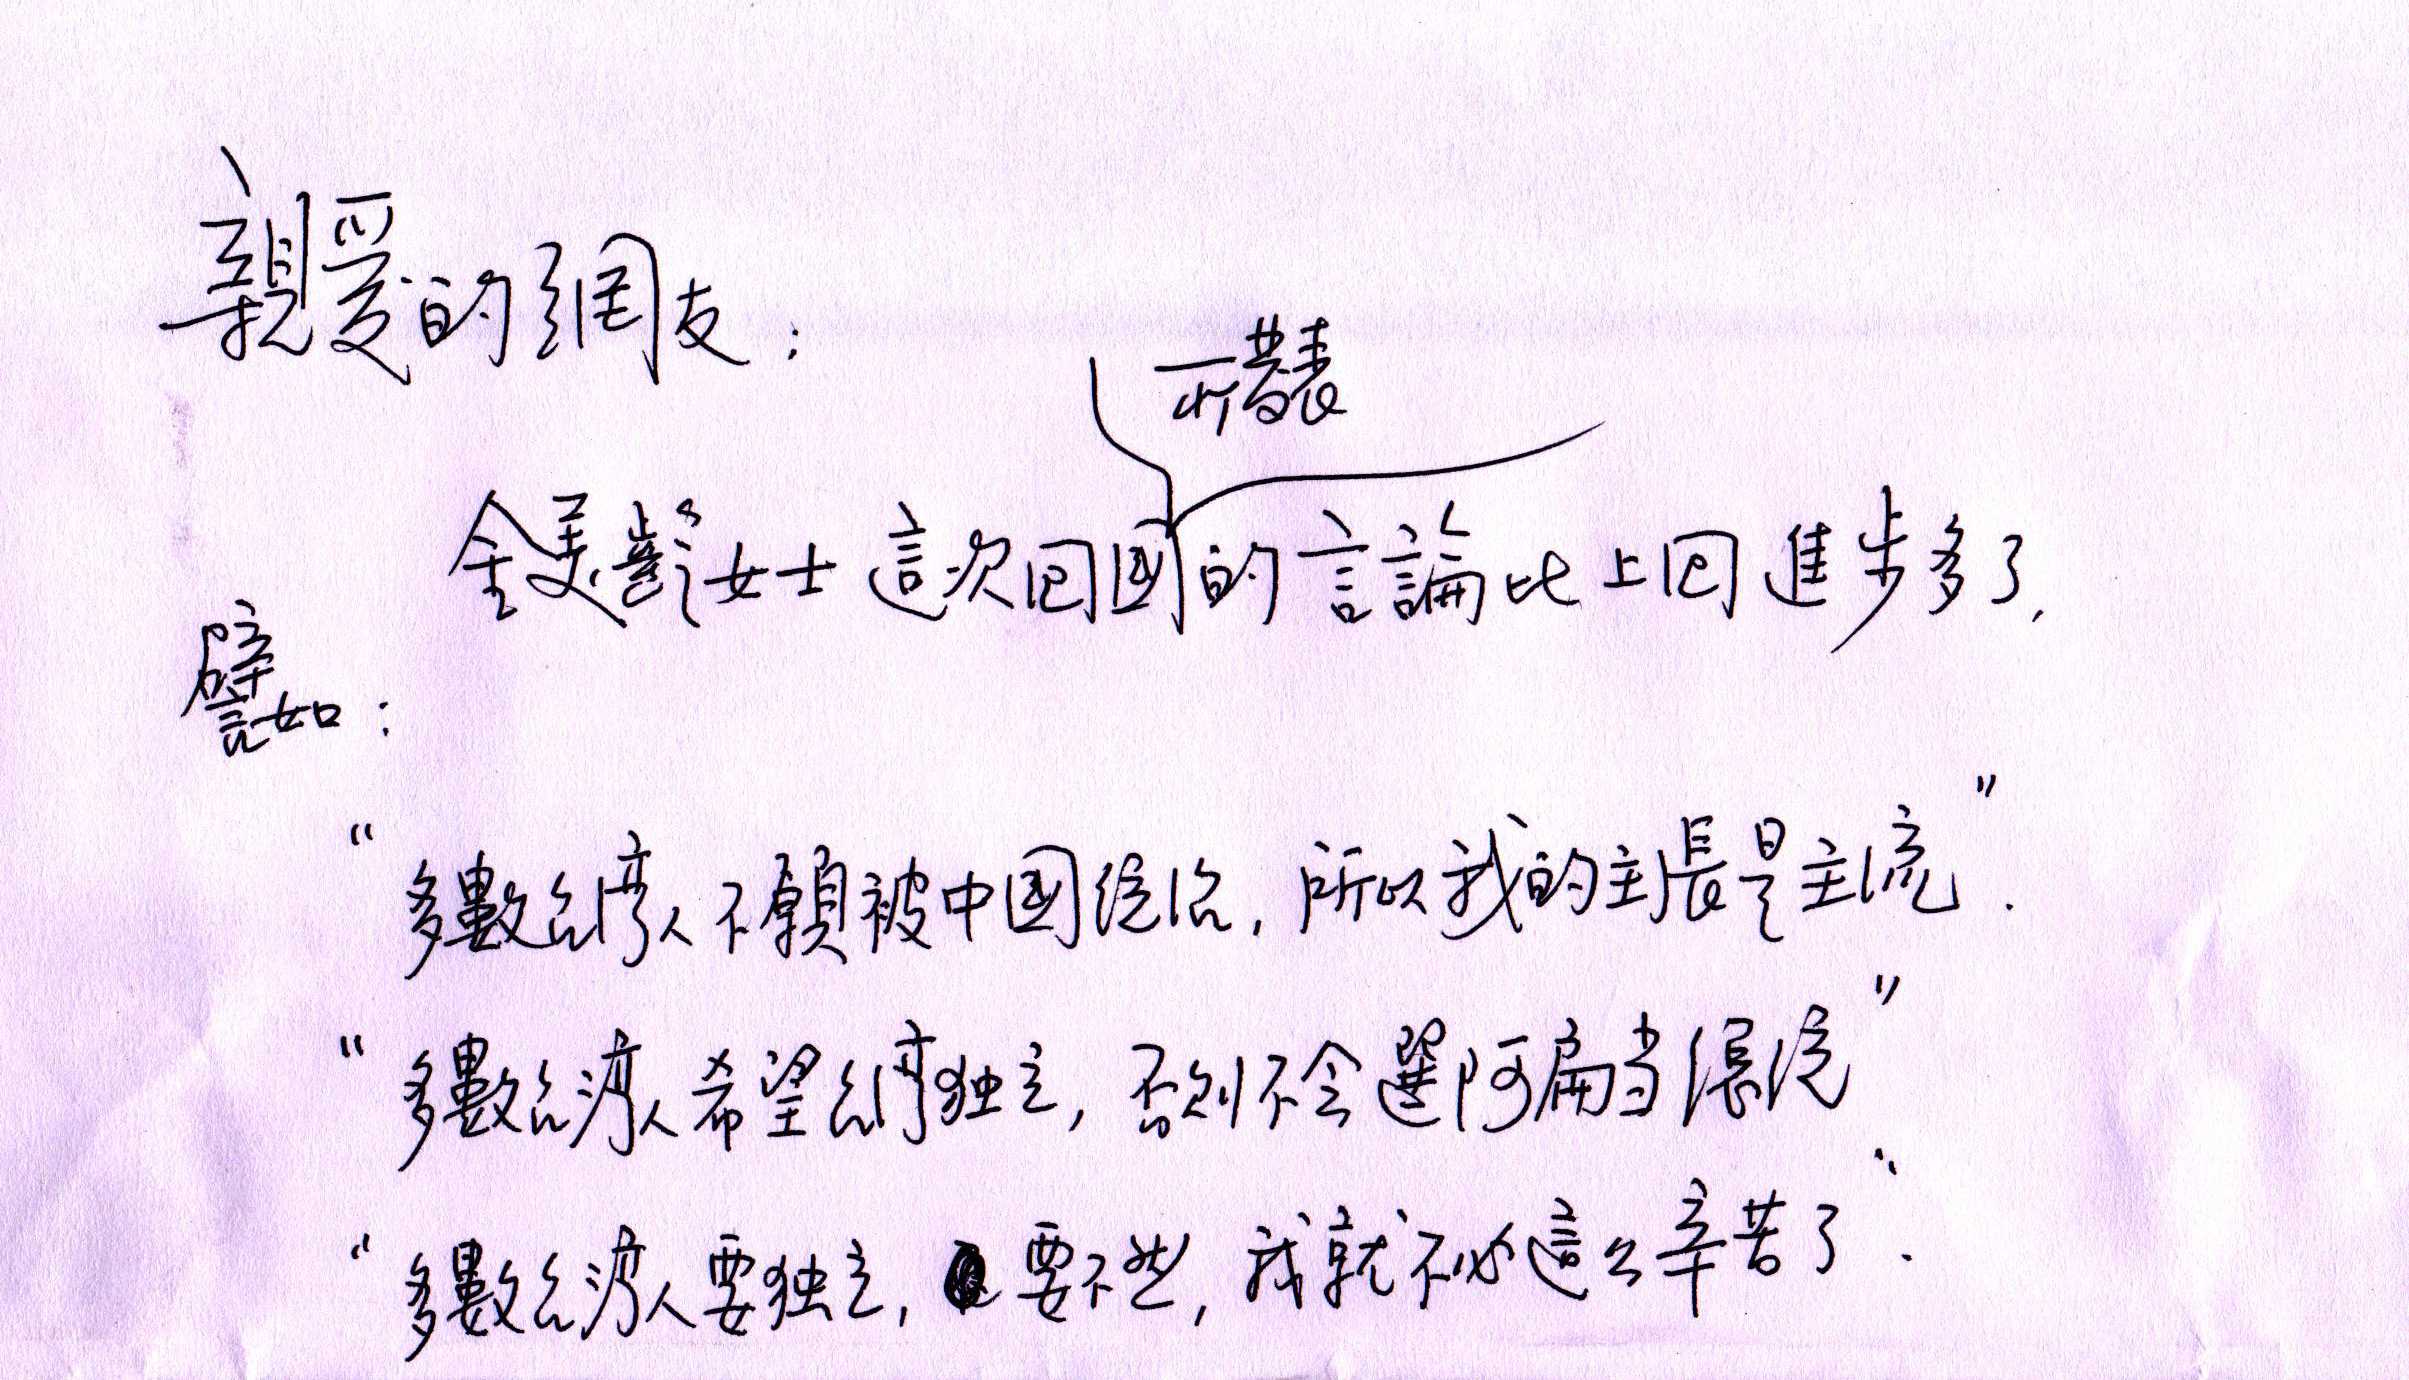 親愛的網友：
所發表
金美齡女士這次回國的言論比上回進步多了，
譬如：
“多數台灣人不願被中國統治，所以我的主張是主流”．
“多數台灣人希望台灣独立，否則不会選阿扁当總統”
“多數台灣人要独立，要不然，我就不必這么辛苦了”．